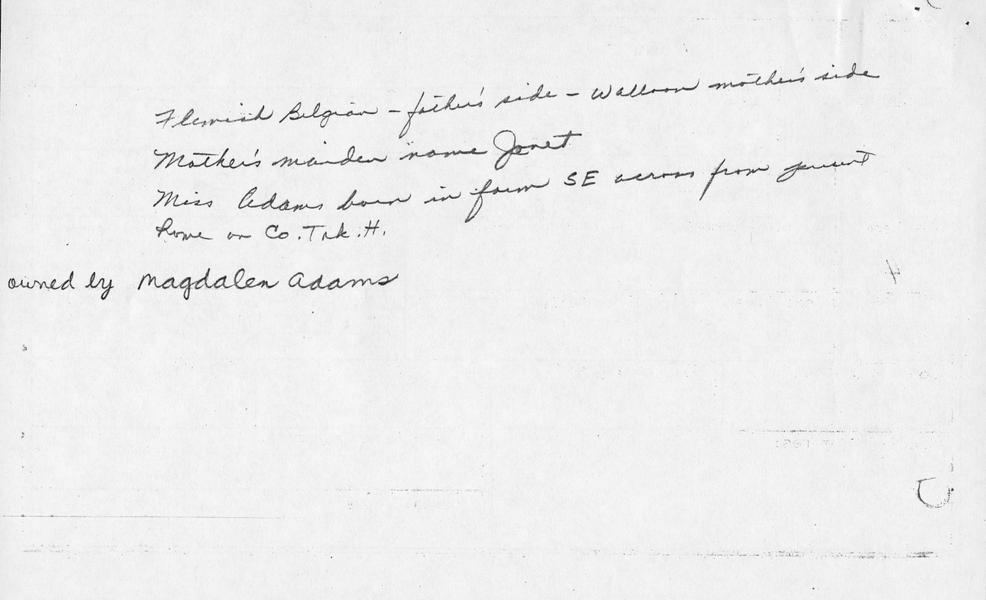 Flemish Belgian - father's side - Walloon mother's side
Mother's maiden name Jonet
Miss Adams born in farm SE across from present
home on Co. Trk. H.
owned by Magdalen Adams